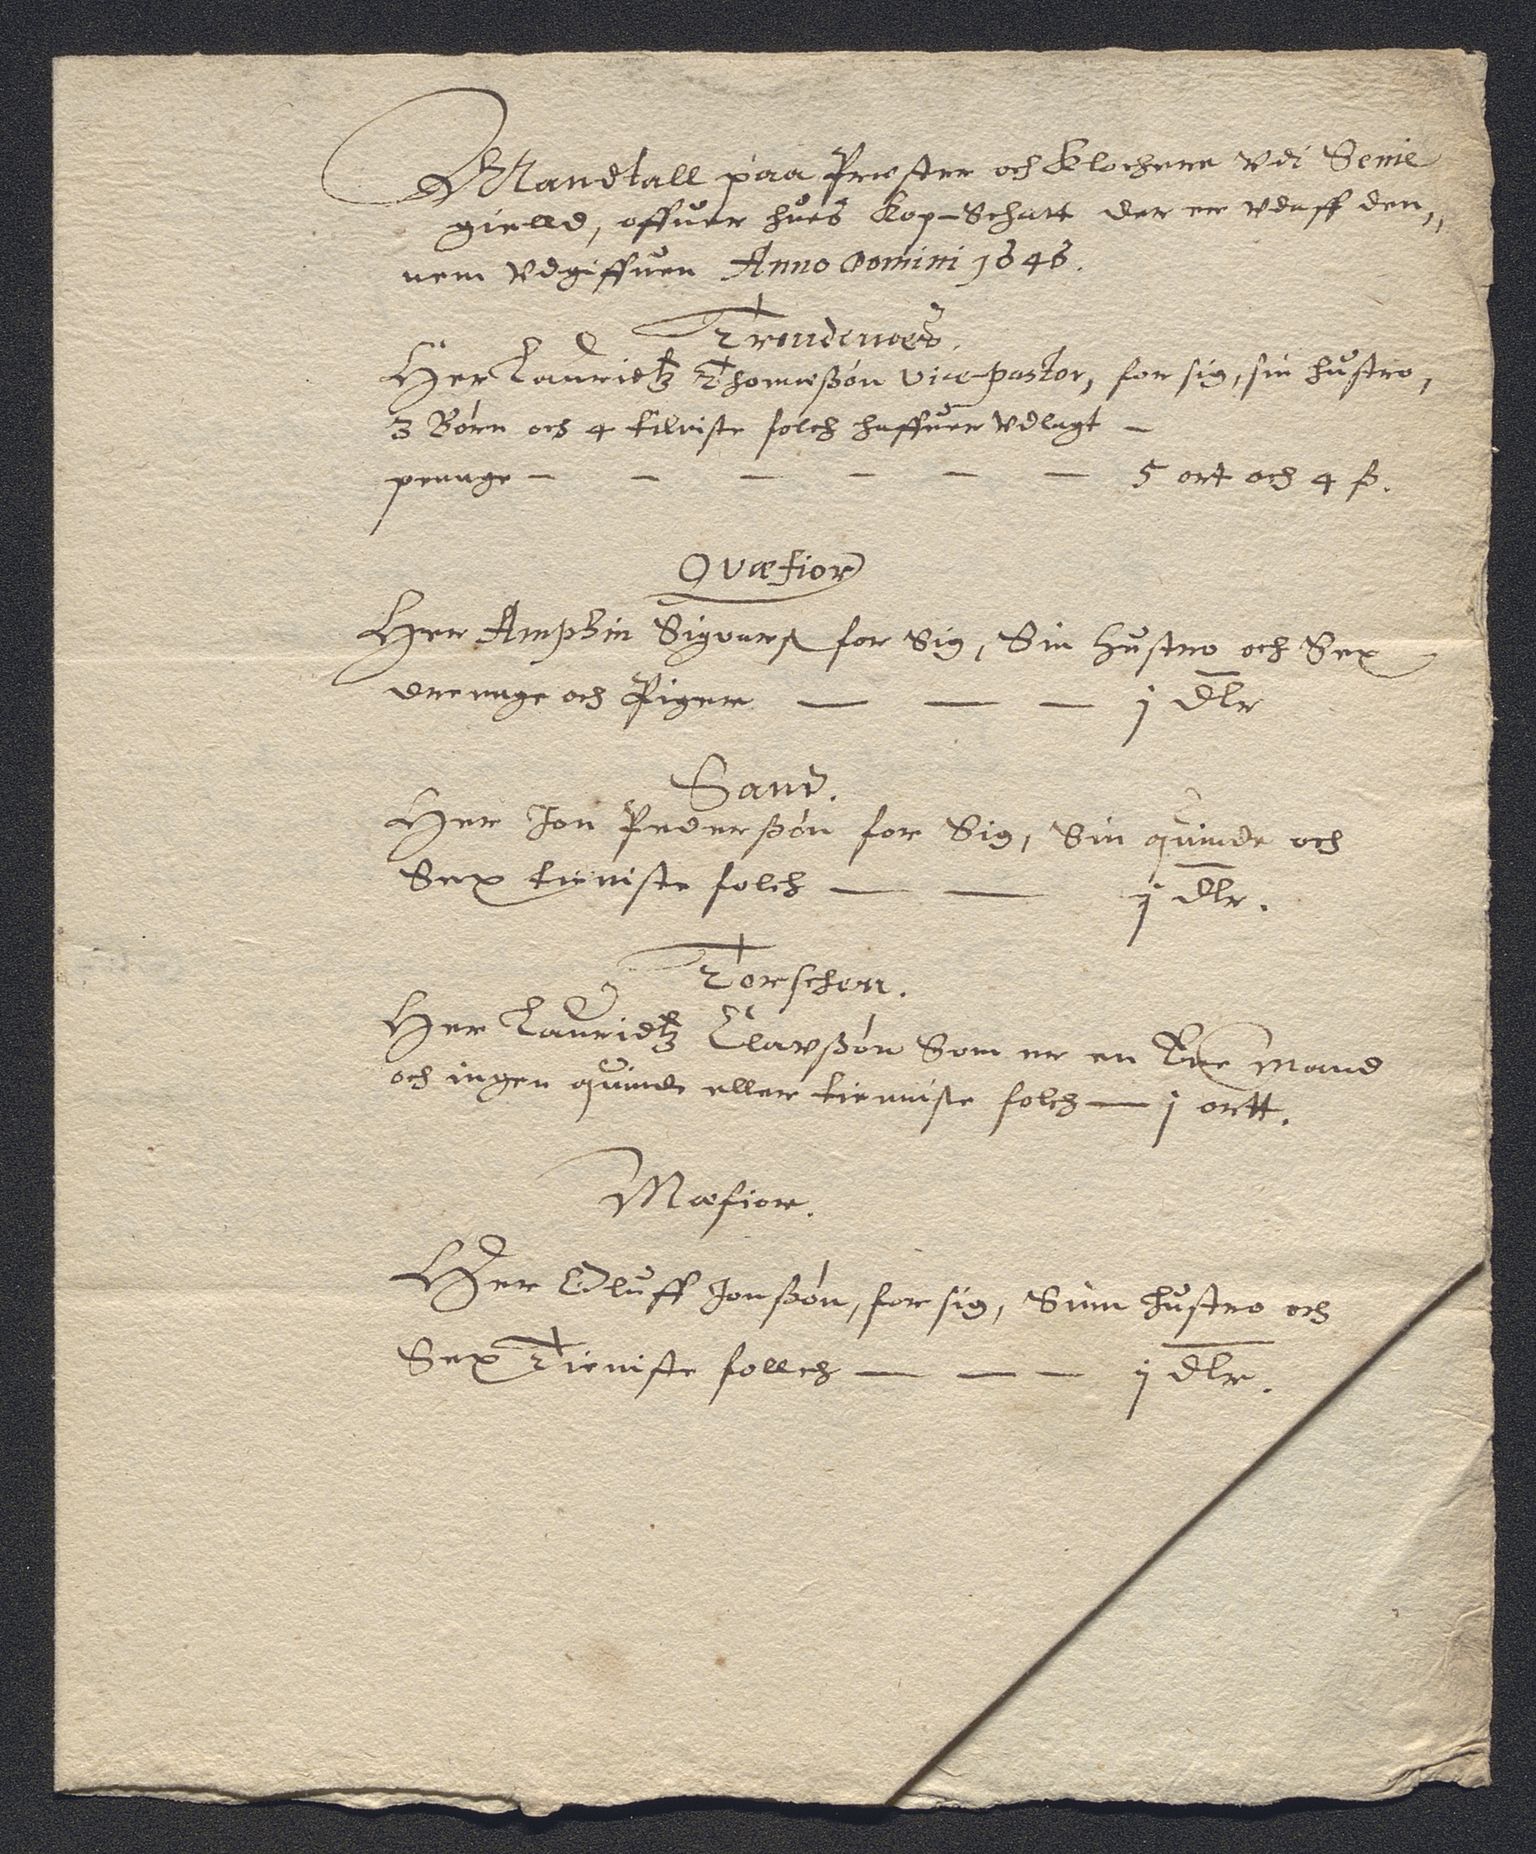 Mandtall paa Prester och Klochere vdi Senie
gielld, offuer hues Kop-Schatt der er vdaff den,,
nem vdgiffuen Anno Domini 1646.
Trondenæs.
Her Lauridtz Thomæßón vice-pastor, for sig, sin hustro,
3 Børn och 4 tieniste folch haffuer vdlagt –
penge – – – – – – 5 ort och 4 ß.
Qvæfior
Her Amphin Sigvarß for Sig, Sin hustro och Sex
drennge och Piger — — — j dlr
Sand.
Her Jon Pederßón for Sig, Sin quinde och
Sex tieniste folch — — j dlr.
Torschen.
Her Lauridtz Clavßón Som er en Mand
och ingen quinde eller tienniste folch — j ortt.
Mæfior.
Her Oluff Jonßón, for sig, Sinn hustro och
Sex Tieniste follch — — – j dlr.